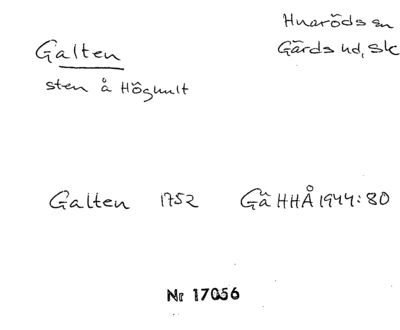 Galten
sten å Höghult
Huaröds sn
Gärds hd, Sk
Galten 1752 Gä HHÅ 1944:80
Nr 17056